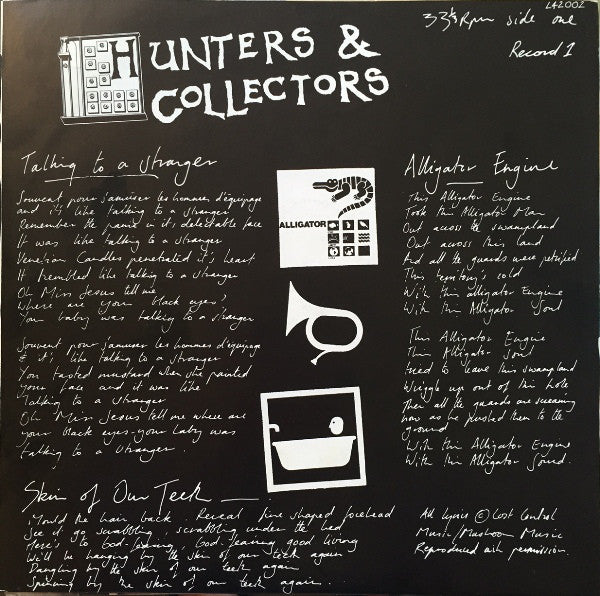 LA2002
33⅓ Rpm side one
Record 1
HUNTERS &
COLLECTORS
Talking to a stranger
Souvent pour s'amuser les hommes d'équipage
and it's like talking to a stranger
Remember the panic in it's delectable face
It was like talking to a stranger
Venetian Candles penetrated it's heart
It trembled like talking to a stranger
Oh Miss Jesus tell me
where are your black eyes,
Your baby was talking to a stranger
Souvent pour s'amuser les hommes d'équipage
& it's like talking to a stranger
You tasted mustard when she painted
your face and it was like
talking to a stranger
Oh Miss Jesus tell me where are
your black eyes - your baby was
talking to a stranger.
ALLIGATOR
Alligator Engine
This Alligator Engine
Took this Alligator Man
Out across the swampland
Out across this land
And all the guards were petrified
This territory's cold
With this alligator Engine
With this Alligator Soul
This Alligator Engine
This Alligator Soul
tried to leave this swampland
Wriggle up out of this hole
Then all the guards are screaming
now as he pushed them to the
ground
With this Alligator Engine
With this Alligator Sound.
Skin of Our Teeth
Mould the hair back. Reveal fine shaped forehead
See it go scrabbling scrabbling under the bed
Here's to God-fearing, God-fearing good living
We'll be hanging by the skin of our teeth again
Dangling by the skin of our teeth again
Spinning by the skin of our teeth again.
All lyrics © Lost Control
Music/Mushroom Music
Reproduced with permission.